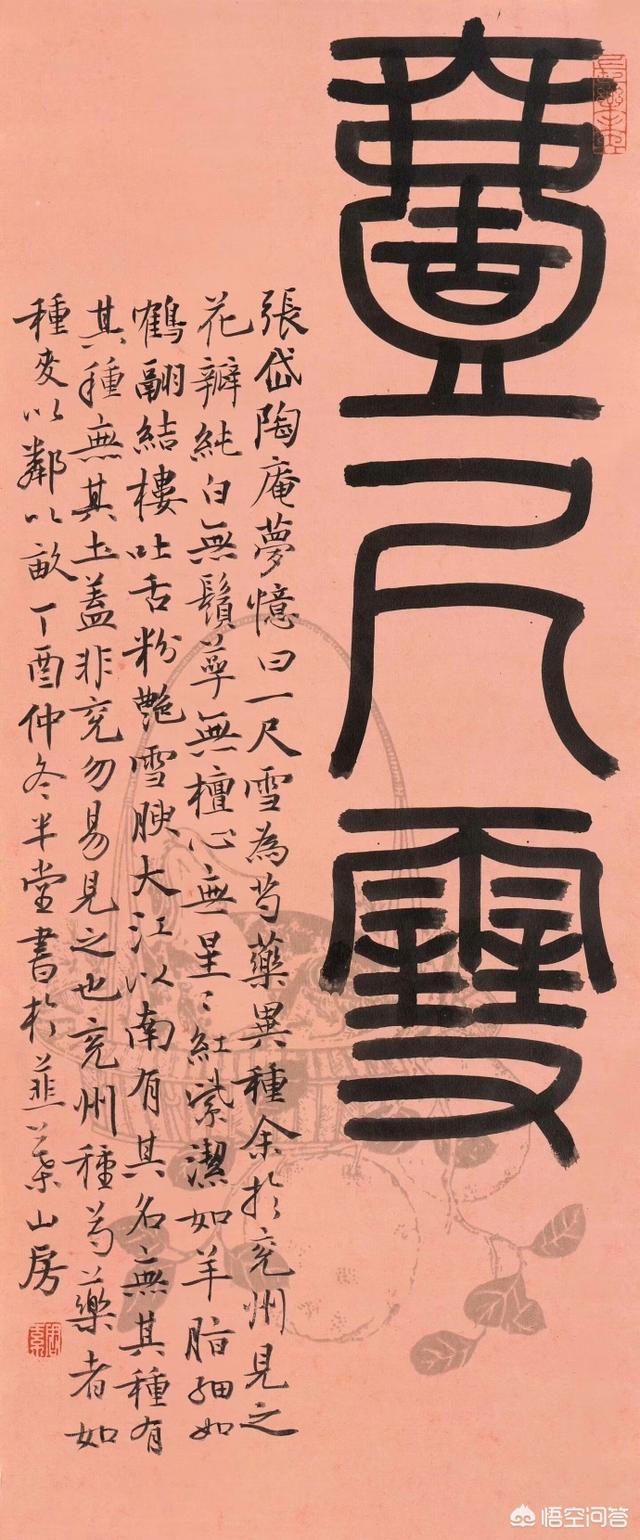 壹尺雪
張岱陶庵夢憶曰一尺雪為芍藥異種余於兗州見之
花瓣純白無鬚萼無檀心無星〻紅紫潔如羊脂細如
鶴翮結樓吐舌粉艷雪腴大江以南有其名無其種有
其種無其土蓋非兗勿易見之也兗州種芍藥者如
種麥以鄰以畝丁酉仲冬半堂書於韭葉山房
悟空问答